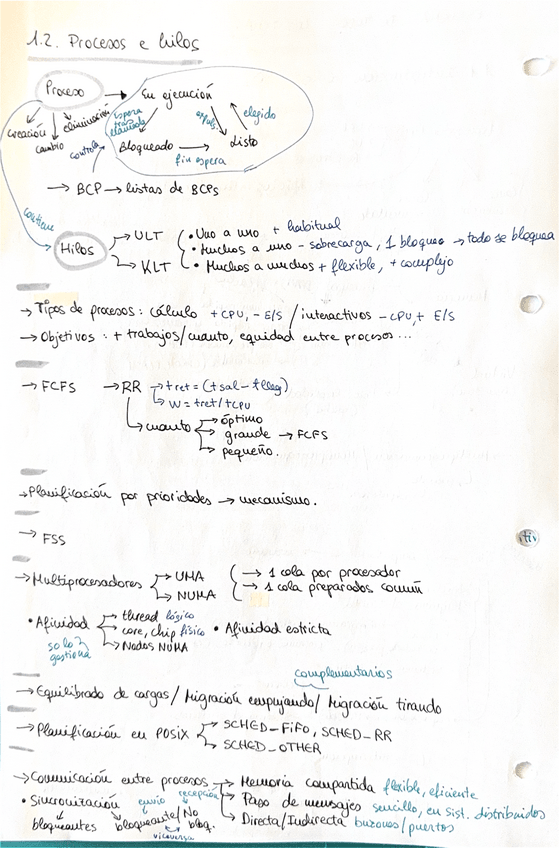 1.2. Procesos e hilos
Proceso → En ejecución
creación cambio eliminación control espera tras llamada expuls. elegido
Bloqueado → Listo
fin espera
→ BCP → listas de BCPs
contiene
Hilos → ULT
→ KLT
• Uno a uno + habitual
• Muchos a uno - sobrecarga, 1 bloqueo → todo se bloquea
• Muchos a muchos + flexible, + complejo
→ Tipos de procesos: cálculo + CPU, - E/S / interactivos - CPU, + E/S
→ Objetivos: + trabajos/cuanto, equidad entre procesos...
→ FCFS → RR → tret = (tsal - tlleg)
→ W = tret/tCPU
→ cuanto → óptimo
→ grande → FCFS
→ pequeño.
→ Planificación por prioridades → mecanismo.
→ FSS
→ Multiprocesadores → UMA → 1 cola por procesador
→ NUMA → 1 cola preparados común
• Afinidad → thread lógico
→ core, chip físico • Afinidad estricta
→ Nodos NUMA
solo gestiona
complementarios
→ Equilibrado de cargas / Migración empujando / Migración tirando
→ Planificación en POSIX → SCHED_FIFO, SCHED_RR
→ SCHED_OTHER
→ Comunicación entre procesos → Memoria compartida flexible, eficiente
→ Paso de mensajes sencillo, en Sist. distribuidos
→ Directa/Indirecta buzones/puertos
• Sincronización envío recepción
bloqueantes bloqueante/No bloq.
viceversa